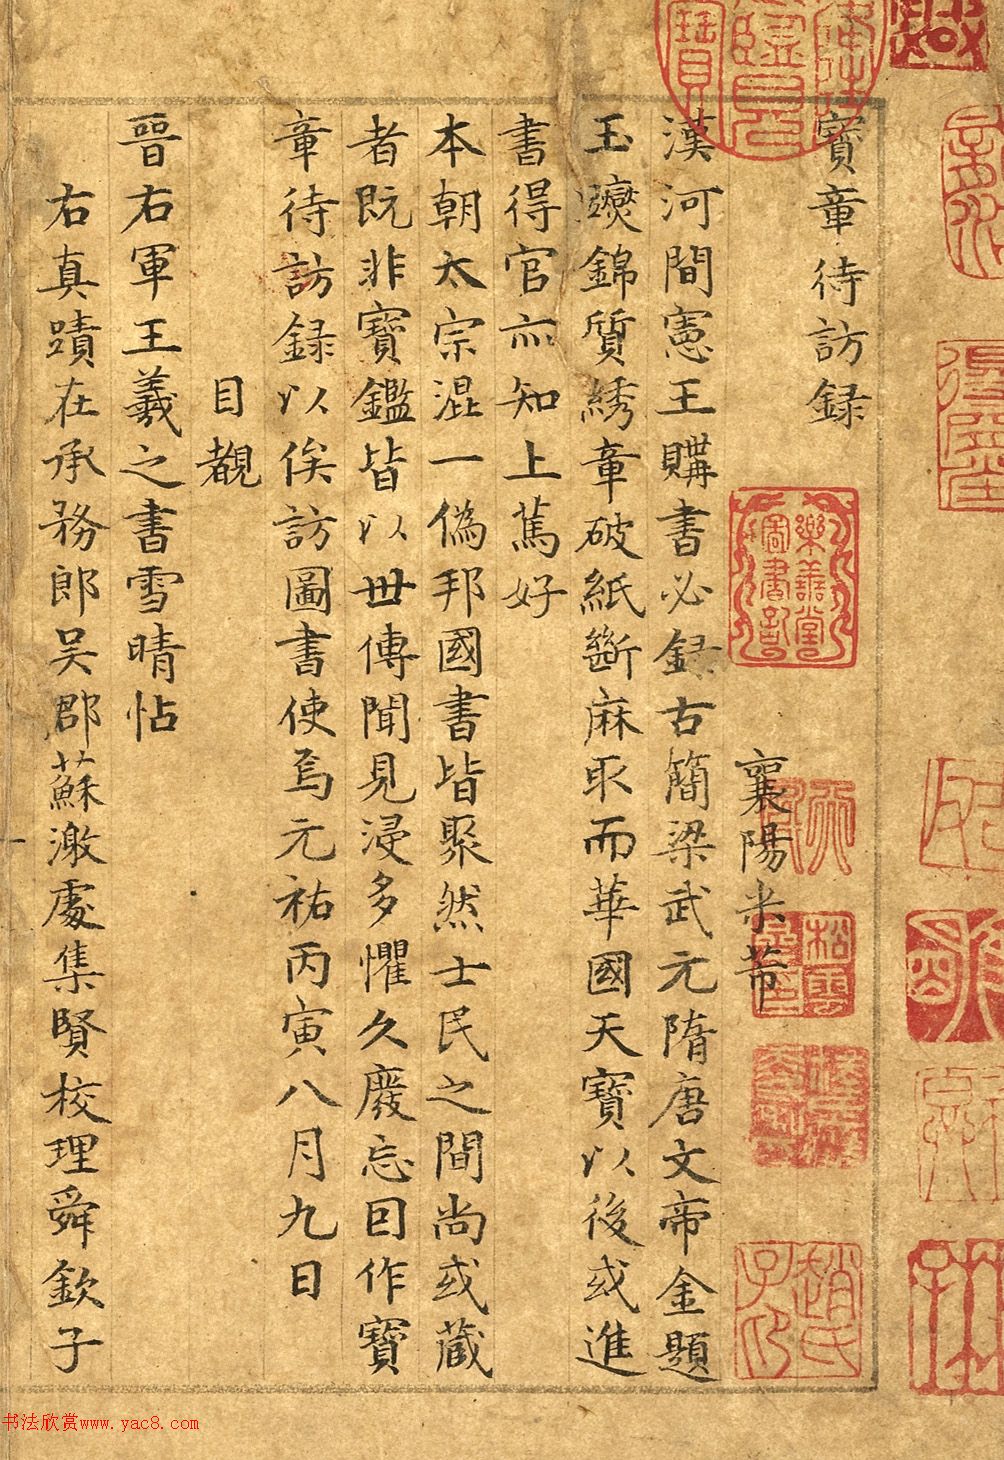 寶章待訪録
襄陽米芾
漢河間憲王購書必録古簡梁武元隋唐文帝金題
玉躞錦質綉章破紙斷麻取而華國天寶以後或進
書得官亦知上篤好
本朝太宗混一偽邦國書皆聚然士民之間尚或藏
者既非寶鑑皆以世傳聞見浸多懼久廢忘囙作寶
章待訪録以俟訪圖書使焉元祐丙寅八月九日
目覩
晉右軍王羲之書雪晴帖
右真蹟在承務郎吴郡蘇激處集賢校理舜欽子
樂善堂
圖書記
趙氏
子印
书法欣赏www.yac8.com